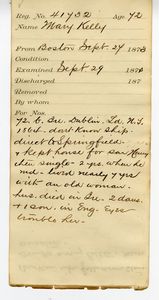 Reg. No. 41732 Age, 72
Name, Mary Kelly
From Boston Sept 24 187
Condition
Examined Sept 29 187
Discharged 187
Removed
By whom
For Nos.
72. C. Ire. Dublin. Ld. N.Y.
dont know ship.
direct to Springfield
kept house for
then single - 2 yrs. when he
md. lived nearly 7 yrs
with an old woman.
hus. died in Ire. 2 daus.
+ 1 son. in Eng. Eyes
trouble her.